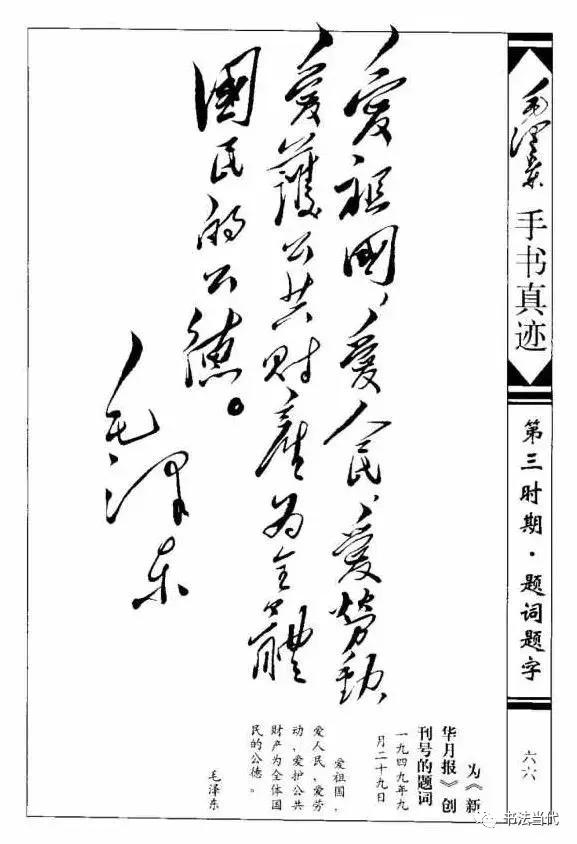 毛澤東
手书真迹
第三时期·题词题字
六六
愛祖國、愛人民、愛勞動、
愛護公共財產為全體
國民的公德。
毛澤东
为《新
华月报》创
刊号的题词
一九四九年九
月二十九日
爱祖国、
爱人民、爱劳
动、爱护公共
财产为全体国
民的公德。
毛泽东
书法当代